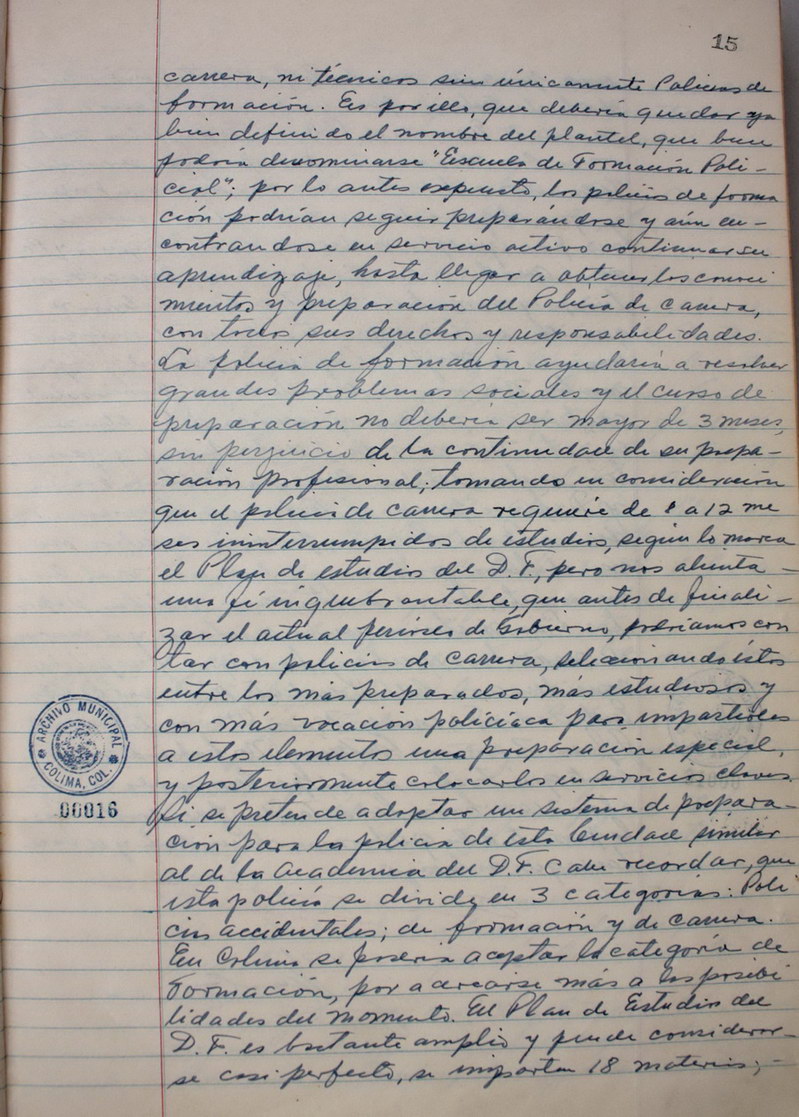 15
carrera, ni técnicos sino únicamente Policías de
formación. Es por ello, que debería quedar ya
bien definido el nombre del plantel, que bien
podría denominarse "Escuela de Formación Poli-
cial"; por lo antes expuesto, los policías de forma
ción podrían seguir preparándose y aún en-
contrandose en servicio activo continuar su
aprendizaje, hasta llegar a obtener los conoci
mientos y preparación del Policía de carrera,
con todos sus derechos y responsabilidades.
La policia de formación ayudaría a resolver
grandes problemas sociales y el curso de
preparación no debería ser mayor de 3 meses,
sin perjuicio de la continuidad de su prepa-
ración profesional; tomando en consideración
que el policía de carrera requiere de 8 a 12 me
ses ininterrumpidos de estudios, según lo marca
el Plan de estudios del D.F., pero nos alienta
una fé inquebrantable, que antes de finali-
zar el actual período de Gobierno, podríamos con
tar con policías de carrera, seleccionando éstos
entre los más preparados, más estudiosos y
con más vocación policíaca para impartirles
a estos elementos una preparación especial,
y posteriormente colocarlos en servicios claves.
Si se pretende adoptar un sistema de prepara-
ción para la policia de esta Ciudad similar
al de la Academia del D.F. cabe recordar, que
esta policía se divide en 3 categorías: Poli
cías accidentales; de formación y de carrera.
En Colima se podría aceptar la categoría de
Formación, por acercarse más a las posibi
lidades del momento. El Plan de Estudios del
D.F. es bastante amplio y puede considerar-
se casi perfecto, se imparten 18 materias;-
ARCHIVO MUNICIPAL
COLIMA, COL.
00016